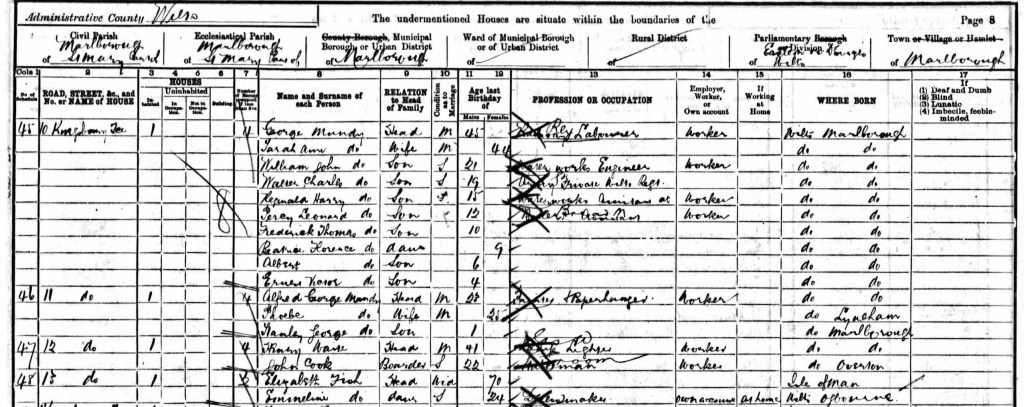 Administrative County Wilts The undermentioned Houses are situate within the boundaries of the Page 8
Civil Parish Ecclesiastical Parish County Borough, Municipal Borough or Urban District Ward of Municipal Borough or of Urban District Rural District Parliamentary Borough or Division Town or Village or Hamlet
of Marlborough St Mary of Marlborough St Mary of Marlborough of of of Wilts of Marlborough
Cols 1 2 3 4 5 6 7 8 9 10 11 12 13 14 15 16 17
No. of Schedule ROAD, STREET, &c., and No. or NAME of HOUSE HOUSES Uninhabited In Occupation Not in Occupation Building Name and Surname of each Person RELATION to Head of Family Condition as to Marriage Age last Birthday of Males Females PROFESSION OR OCCUPATION Employer, Worker, or Own account If Working at Home WHERE BORN (1) Deaf and Dumb (2) Blind (3) Lunatic (4) Imbecile, feeble-minded
45 10 1 4 George Mundy Head M 45 Labourer Worker Wilts Marlborough
Sarah Ann do Wife M 44 do do
William John do Son S 21 works Engineer Worker do do
Walter Charles do Son S 19 Private Wilts Regt. do do
Reginald Harry do Son S 15 Worker do do
Percy Leonard do Son 12 Worker do do
Frederick Thomas do Son 10 do do
Beatrice Florence do daur 9 do do
Albert do Son 6 do do
Ernest Victor do Son 4 do do
46 11 do 1 4 Alfred George Mundy Head M 28 & Paperhanger Worker do do
Phoebe do Wife M 25 do Lyneham
Stanley George do Son 1 do Marlborough
47 12 do 1 4 Henry Head M 41 Lighter Worker do do
John Cook Boarder S 22 Worker do Overton
48 do 1 2 Elizabeth Fish Head Wid 70 Isle of Man
Emmeline do daur S 24 own account at home Wilts Ogbourne